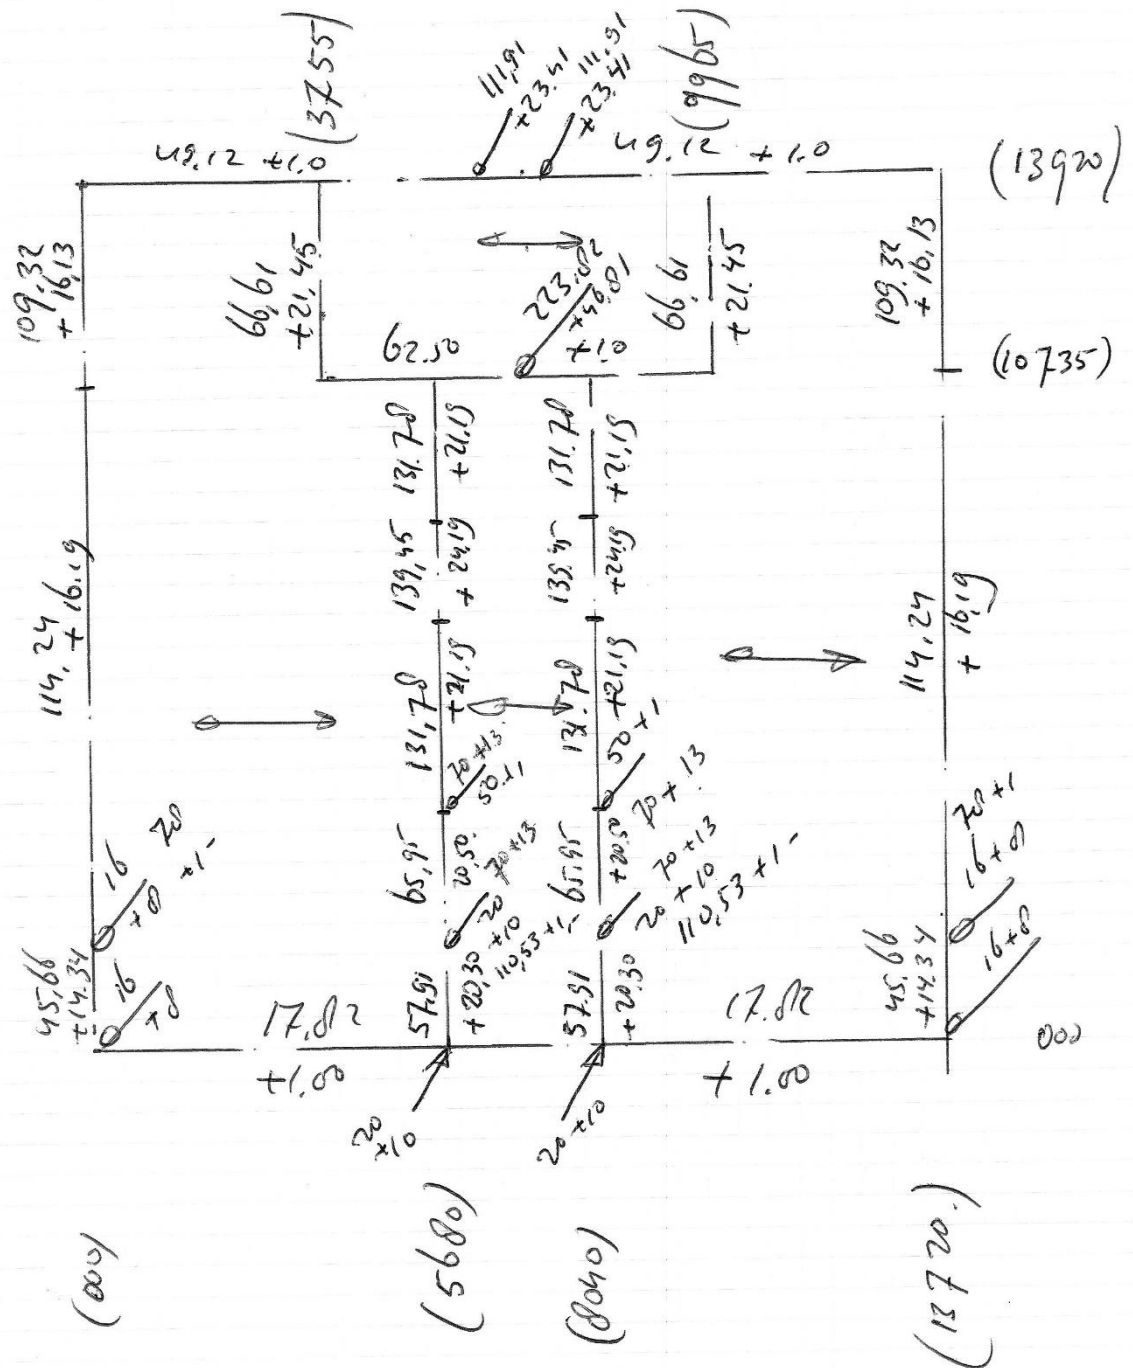 (3755)
111,91
+23.41
111.91
+23.41
(9965)
49.12 +1.0
49.12 +1.0
(13920)
109.32
+ 16,13
66,61
+21.45
223.82
+46.81
66.61
+21.45
109.32
+ 16,13
62.50
+1.0
(10735)
131.78
+21.19
131.78
+21,19
139,45
+ 24,19
139.45
+24,19
114,24
+ 16.19
114,24
+ 16,19
131,78
+21.19
131.78
+21,19
70+13
50+1
50+1
70+13
65,95
20,50.
65,95
+20,50
16
+8
70
+1-
20
70+13
+10
110,53+1-
70+13
20+10
110,53 +1-
70+1
16+8
45,66
+14.34
16
+8
57.91
+20,30
57.91
+20.30
45,66
+14.34
16+8
17.82
+1.00
17.82
+1.00
000
20
+10
20+10
(000)
(5680)
(8040)
(13720.)